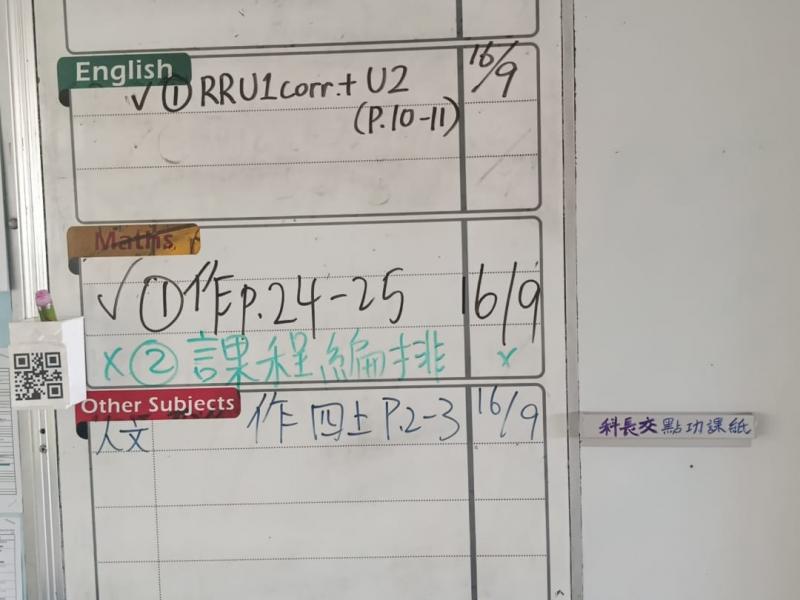 English
✓ ① RRU1corr.+ U2 16/9
(P.10-11)
Maths
✓ ① 作p.24-25 16/9
x ② 課程編排 x
Other Subjects
人文 作 四上 P.2-3 16/9
科長交點功課紙